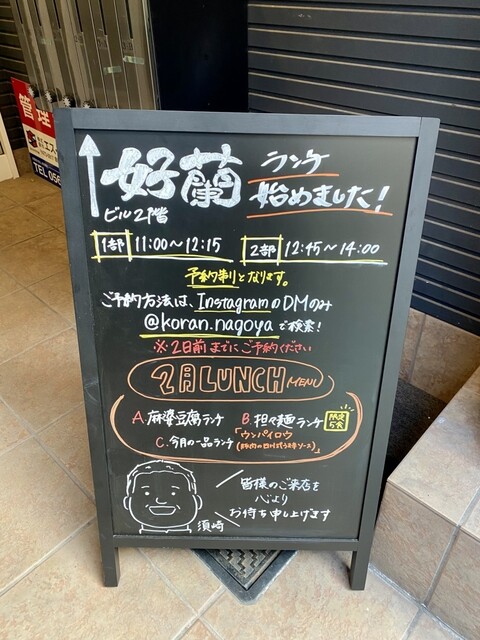 管理
エス
TEL 056
好蘭 ランチ
始めました!
ビル2階
1部 11:00～12:15 2部 12:45～14:00
予約制となります。
ご予約方法は、InstagramのDMのみ
@koran.nagoya で検索!
※2日前までにご予約ください
2月LUNCH MENU
A.麻婆豆腐ランチ B.担々麺ランチ 限定5食
C.今月の一品ランチ「ウンパイロウ
(豚肉の四川式うま辛ソース)」
皆様のご来店を
心より
お待ち申し上げます
須崎